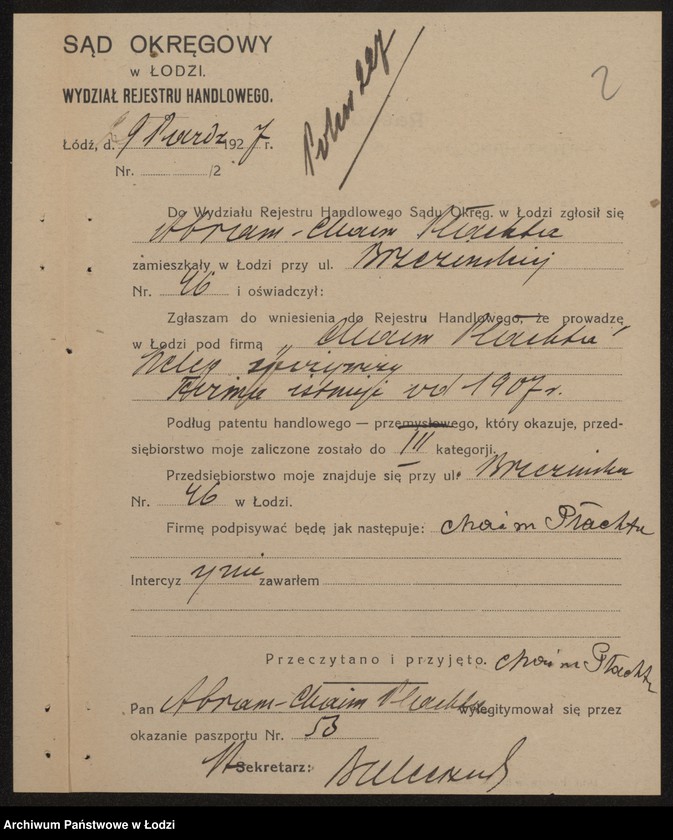 SĄD OKRĘGOWY
w ŁODZI.
WYDZIAŁ REJESTRU HANDLOWEGO.
2
Łódź, d. 9 Paźdz 1927 r.
Nr. /2
Do Wydziału Rejestru Handlowego Sądu Okręg. w Łodzi zgłosił się
Abram-Chaim Płachta
zamieszkały w Łodzi przy ul. Brzezińskiej
Nr. 46 i oświadczył:
Zgłaszam do wniesienia do Rejestru Handlowego, że prowadzę
w Łodzi pod firmą „Chaim Płachta"
Sklep spożywczy
Firma istnieje od 1907 r.
Podług patentu handlowego — przemysłowego, który okazuje, przed-
siębiorstwo moje zaliczone zostało do III kategorji.
Przedsiębiorstwo moje znajduje się przy ul. Brzezińska
Nr. 46 w Łodzi.
Firmę podpisywać będę jak następuje: Chaim Płachta
Intercyzy nie zawarłem
Przeczytano i przyjęto. Chaim Płachta
Pan Abram-Chaim Płachta wylegitymował się przez
okazanie paszportu Nr. 53
Sekretarz:
Archiwum Państwowe w Łodzi